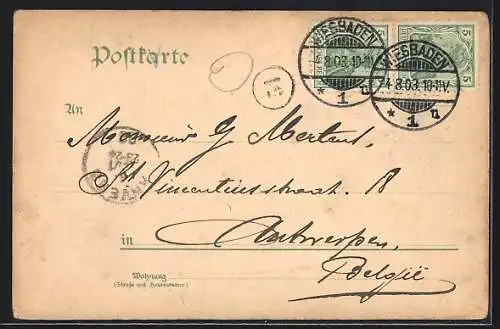 5 5
WIESBADEN WIESBADEN
Postkarte
8.03.10-11V. -4.8.03.10-11V.
* 1 * 1
An
Monsieur G Mertens,
St Vincentiusstraat. 18
in Antwerpen,
België
Wohnung
(Straße und Hausnummer)